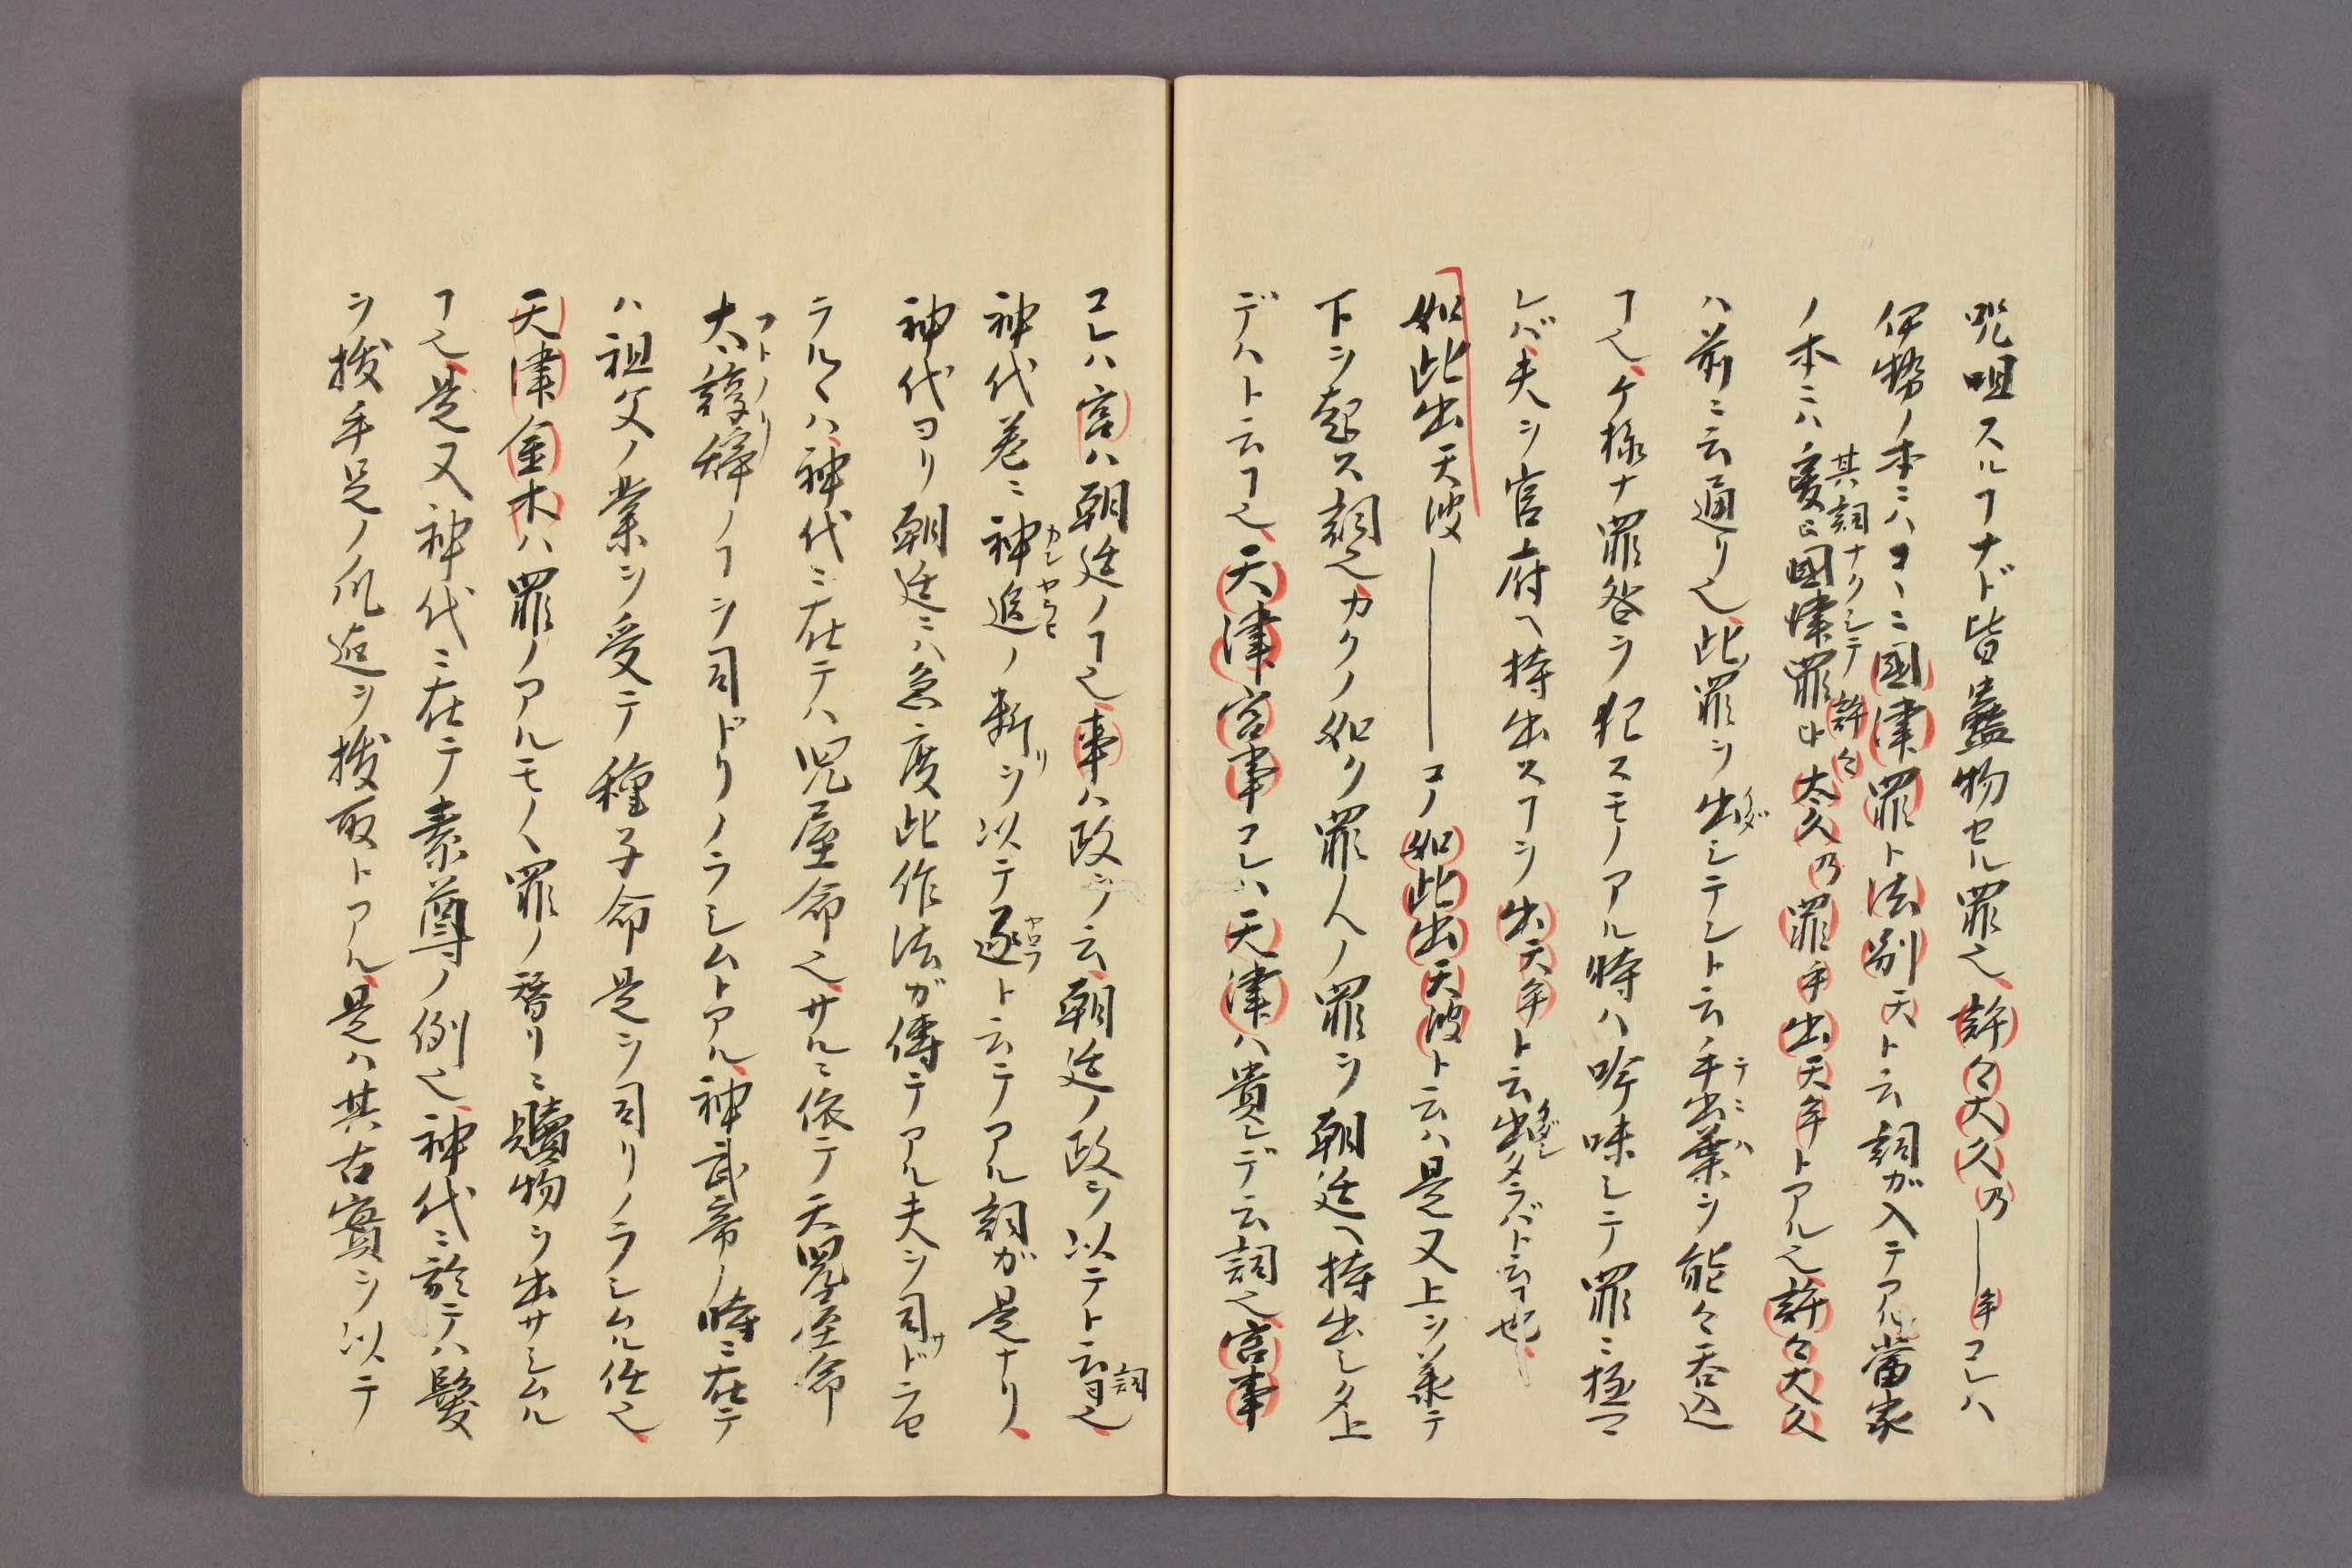 呪咀スルヿナド皆蠱物セル罪也許々太久乃―――牟コレハ
伊勢ノ本ニハコヽニ國津罪ト法别天ト云詞ガ入テアル當家
ノ本ニハ其詞ナクシテ爰ニ國津罪ト許々太久乃罪乎出天牟トアル也許々太久
ハ前ニ云通リ也此罪ヲ出シテシト云手出葉ヲ能々呑込
ヿ也ケ様ナ罪咎ヲ犯スモノアル時ハ吟味シテ罪ニ極マ
レバ夫ヲ官府ヘ持出スヿヲ出天牟ト云出タラバト云ヿ也
如此出天波―――コノ如此出天波ト云ハ是又上ヲ兼テ
下ヲ起ス詞也カクノ如ク罪人ノ罪ヲ朝廷ヘ持出シタ上
デハト云ヿ也天津宮事コレハ天津ハ貴ンデ云詞也宮事
コレハ宮ハ朝廷ノヿ也事ハ政ヲ云朝廷ノ政ヲ以テト云詞也
神代巻ニ神追カンヤラヒノ断リヲ以テ逐ヤロフト云テアル詞ガ是ナリ
神代ヨリ朝廷ニハ急度此作法ガ傳テアル夫ヲ司サドラセ
ラルヽハ神代ニ在テハ児屋命也サルニ依テ天児屋命
太諄辞フトノリトノヿヲ司ドリノラシムトアル神武帝ノ時ニ在テ
ハ祖父ノ業ヲ受テ種子命是ヲ司リノラシムル仕也
天津金木ハ罪ノアルモノヽ罪ノ替リニ贖物ヲ出サシムル
ヿ也是又神代ニ在テ素尊ノ例也神代ニ於テハ髪
ヲ拔手足ノ爪迠ヲ拔取トアル是ハ其古實ヲ以テ